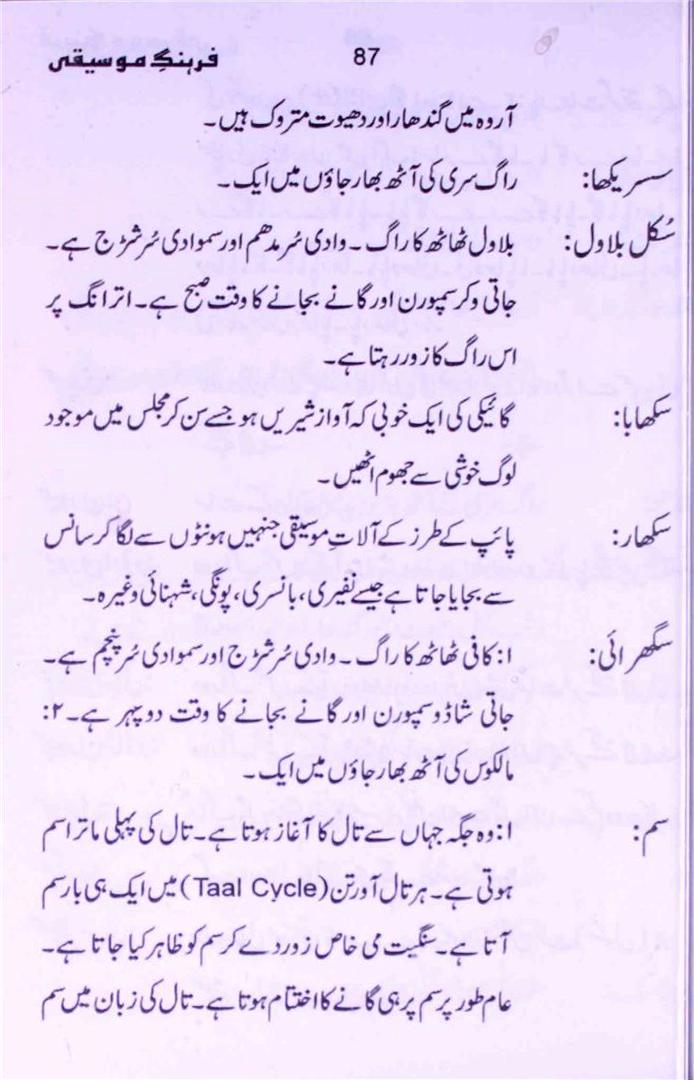 فرہنگِ موسیقی 87
آروہ میں گندھار اور دھیوت متروک ہیں۔
سسریکھا: راگ سری کی آٹھ بھارجاؤں میں ایک۔
سُکل بلاول: بلاول ٹھاٹھ کا راگ۔ وادی سُر مدھم اور سموادی سُر شڑج ہے۔
جاتی وکر سمپورن اور گانے بجانے کا وقت صبح ہے۔ اترانگ پر
اس راگ کا زور رہتا ہے۔
سکھابا: گائیکی کی ایک خوبی کہ آواز شیریں ہو جسے سن کر مجلس میں موجود
لوگ خوشی سے جھوم اٹھیں۔
سکھار: پائپ کے طرز کے آلاتِ موسیقی جنہیں ہونٹوں سے لگا کر سانس
سے بجایا جاتا ہے جیسے نفیری، بانسری، پونگی، شہنائی وغیرہ۔
سگھرائی: ۱: کافی ٹھاٹھ کا راگ۔ وادی سُر شڑج اور سموادی سُر پنچم ہے۔
جاتی شاڈو سمپورن اور گانے بجانے کا وقت دوپہر ہے۔ ۲:
مالکوس کی آٹھ بھارجاؤں میں ایک۔
سم: ۱: وہ جگہ جہاں سے تال کا آغاز ہوتا ہے۔ تال کی پہلی ماترا سم
ہوتی ہے۔ ہر تال آورتن (Taal Cycle) میں ایک ہی بار سم
آتا ہے۔ سنگیت می خاص زور دے کر سم کو ظاہر کیا جاتا ہے۔
عام طور پر سم پر ہی گانے کا اختتام ہوتا ہے۔ تال کی زبان میں سم